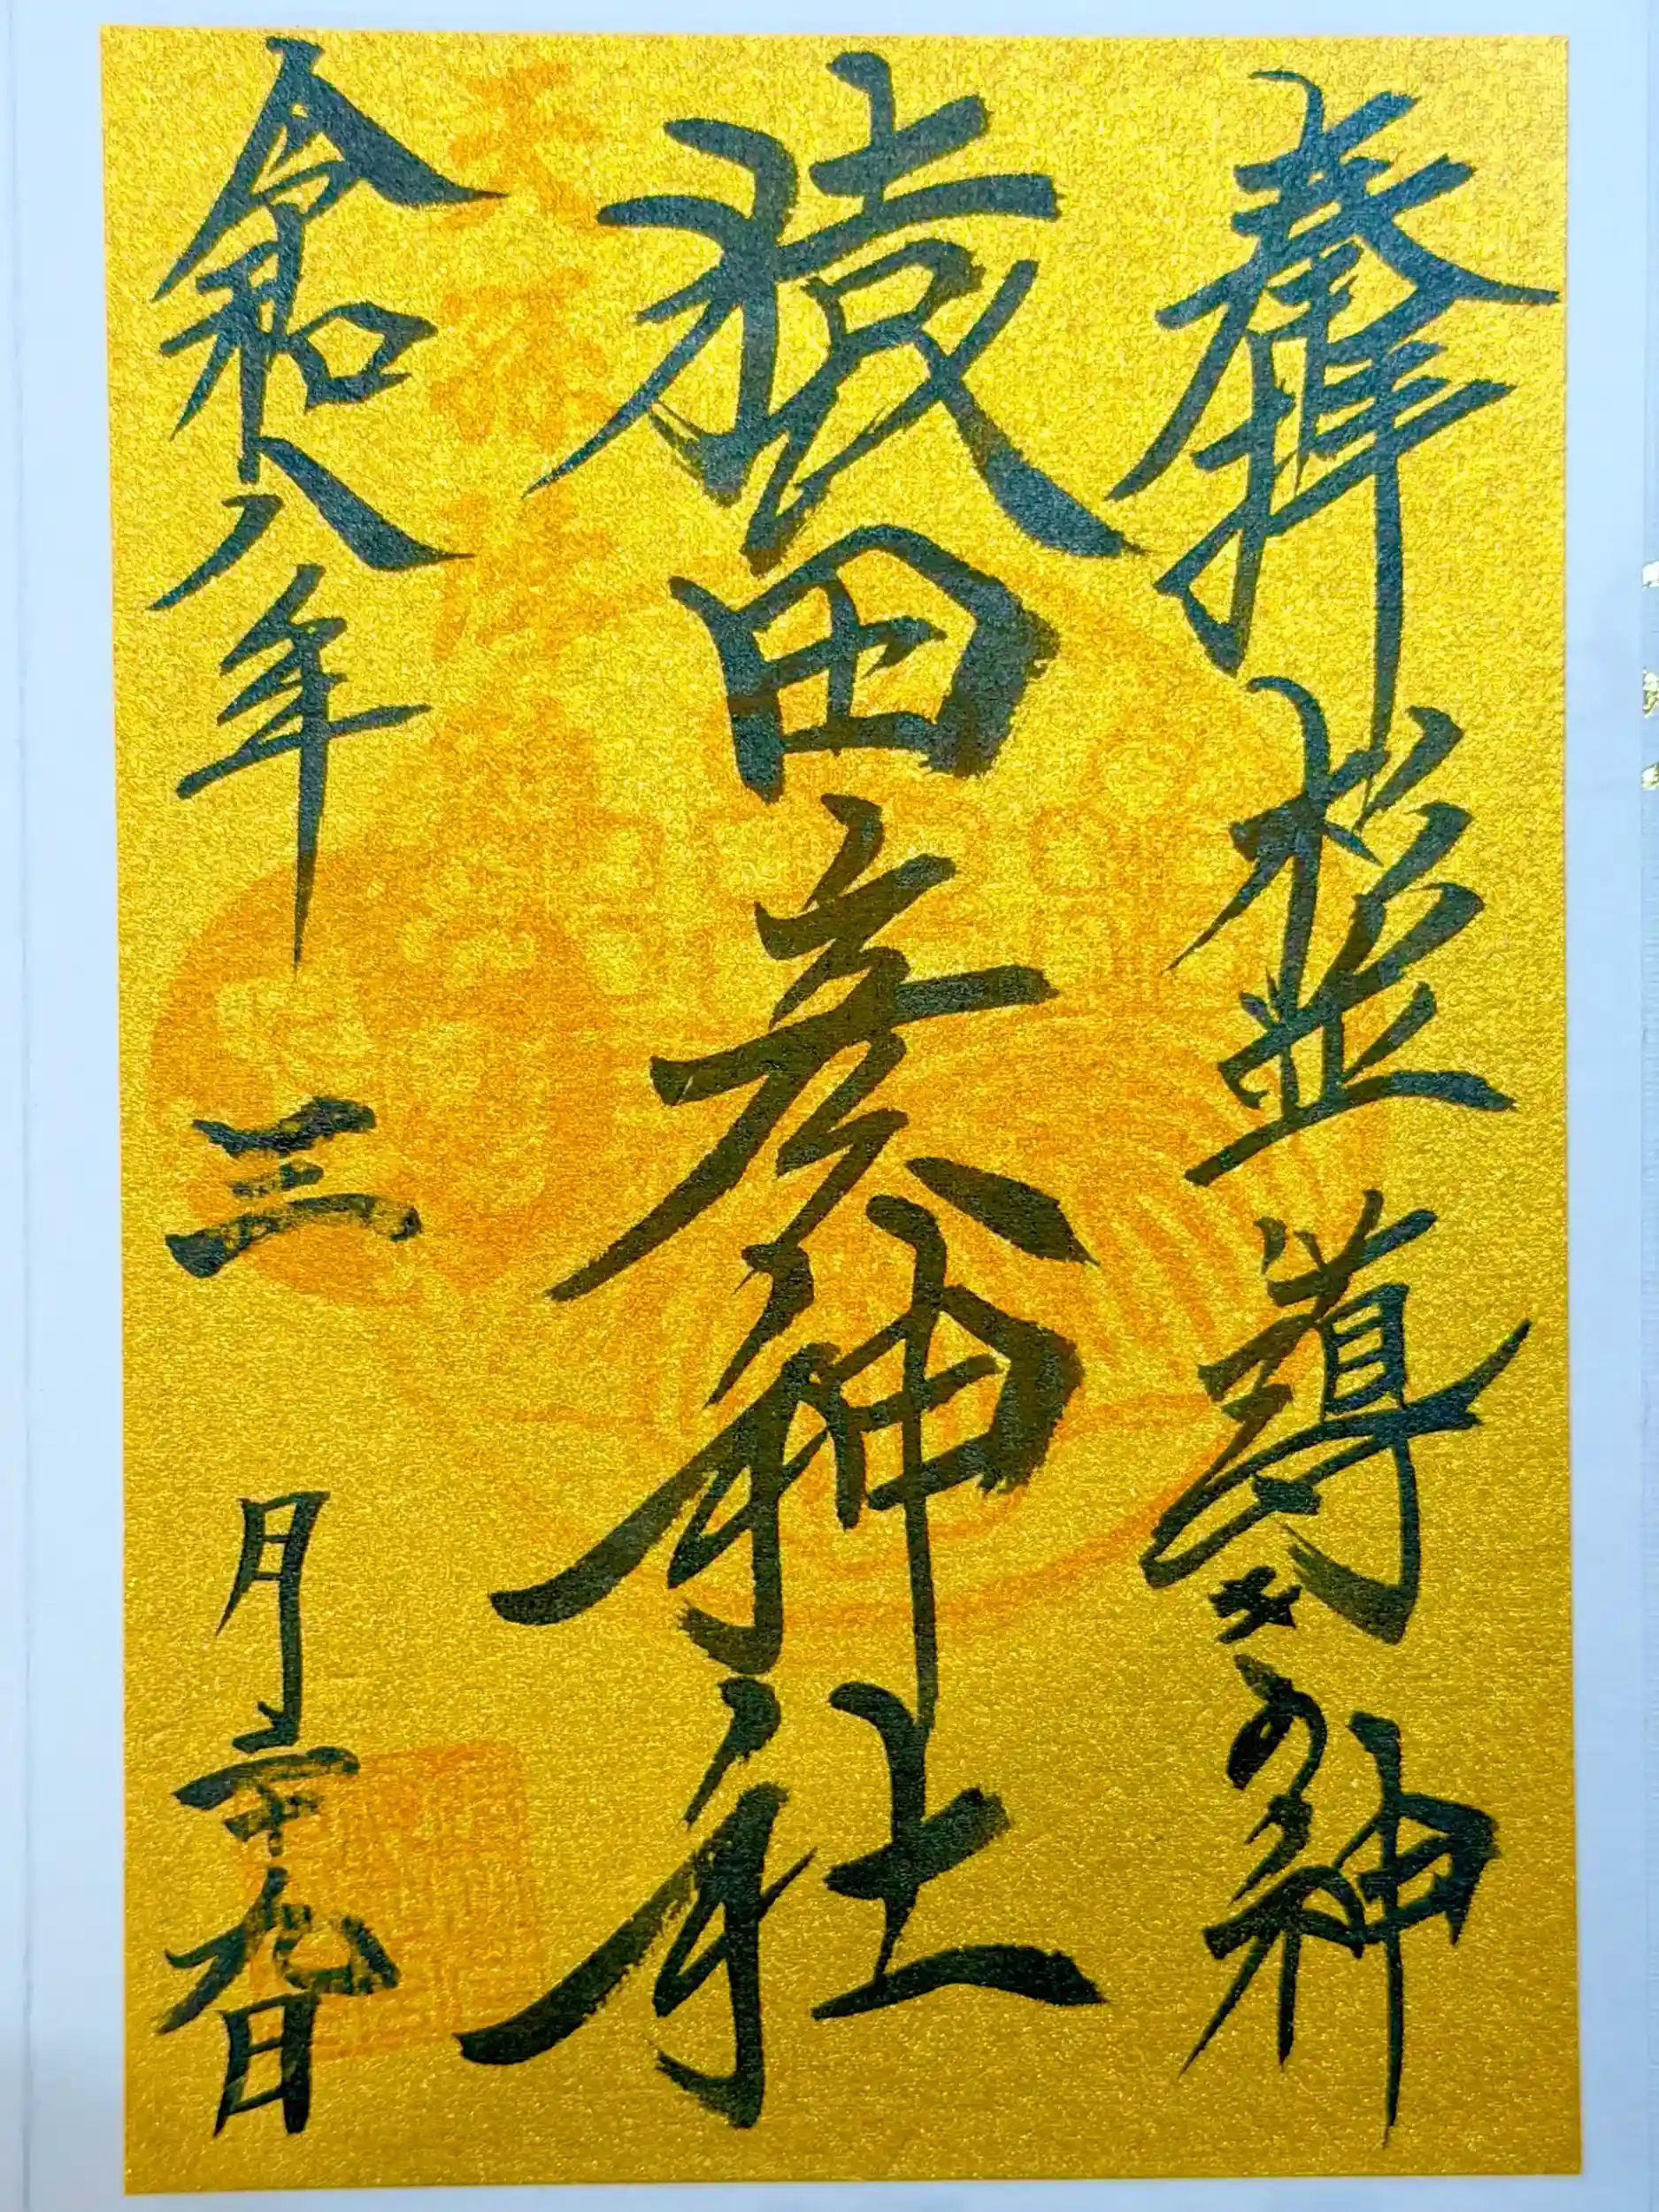 奉拝 導きの神
猿田彦神社
令和八年 三月二十九日